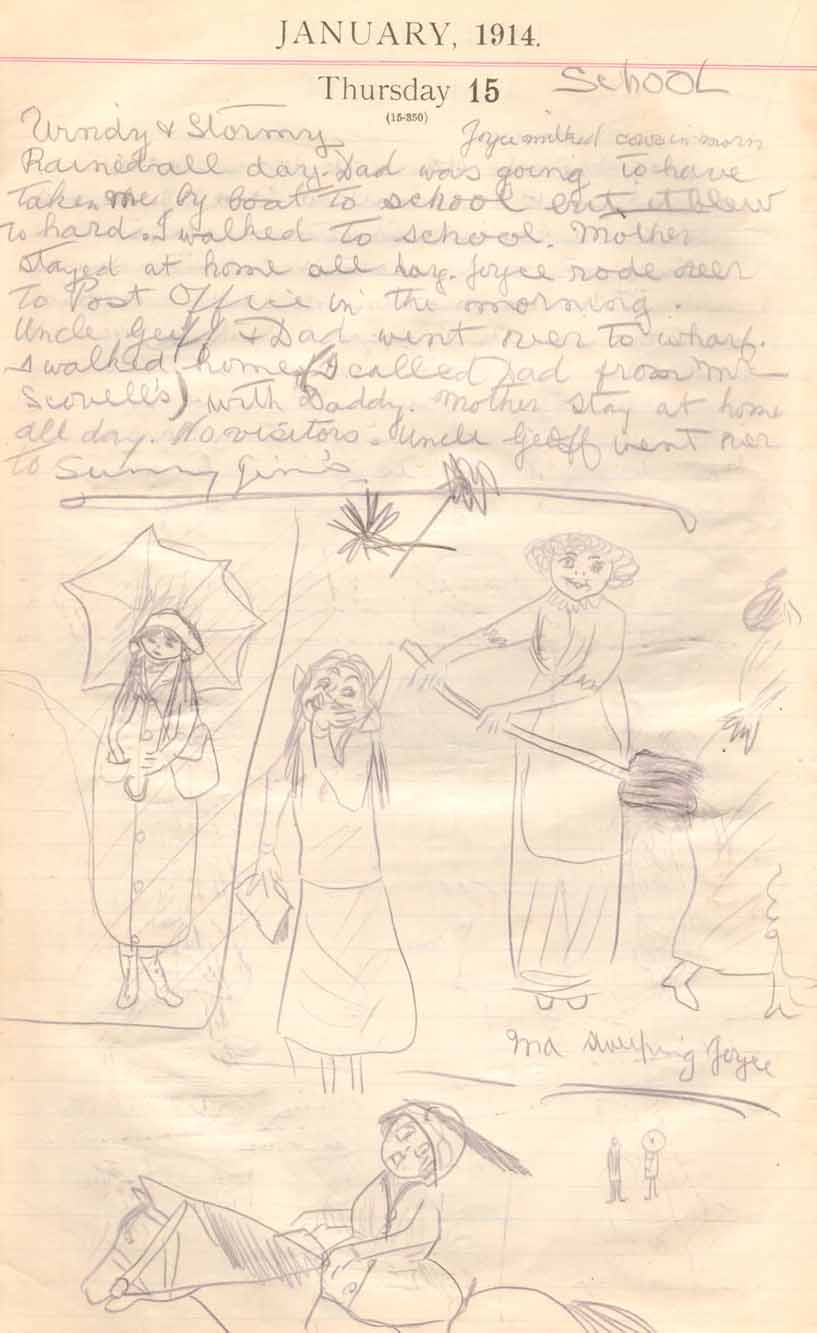 JANUARY, 1914.
Thursday 15
SCHOOL
(15-350)
Windy & Stormy
Joyce milked cows in morn
Rained all day. Dad was going to have
taken me by boat to school but it blew
to hard. I walked to school. Mother
stayed at home all day. Joyce rode over
to Post Office in the morning.
Uncle Geoff & Dad went over to wharf.
I walked home (I called Dad from Mr
Scovell's) with Daddy. Mother stay at home
all day. No visitors. Uncle Geoff went over
to Sunny Jim's
Ma sweeping Joyce